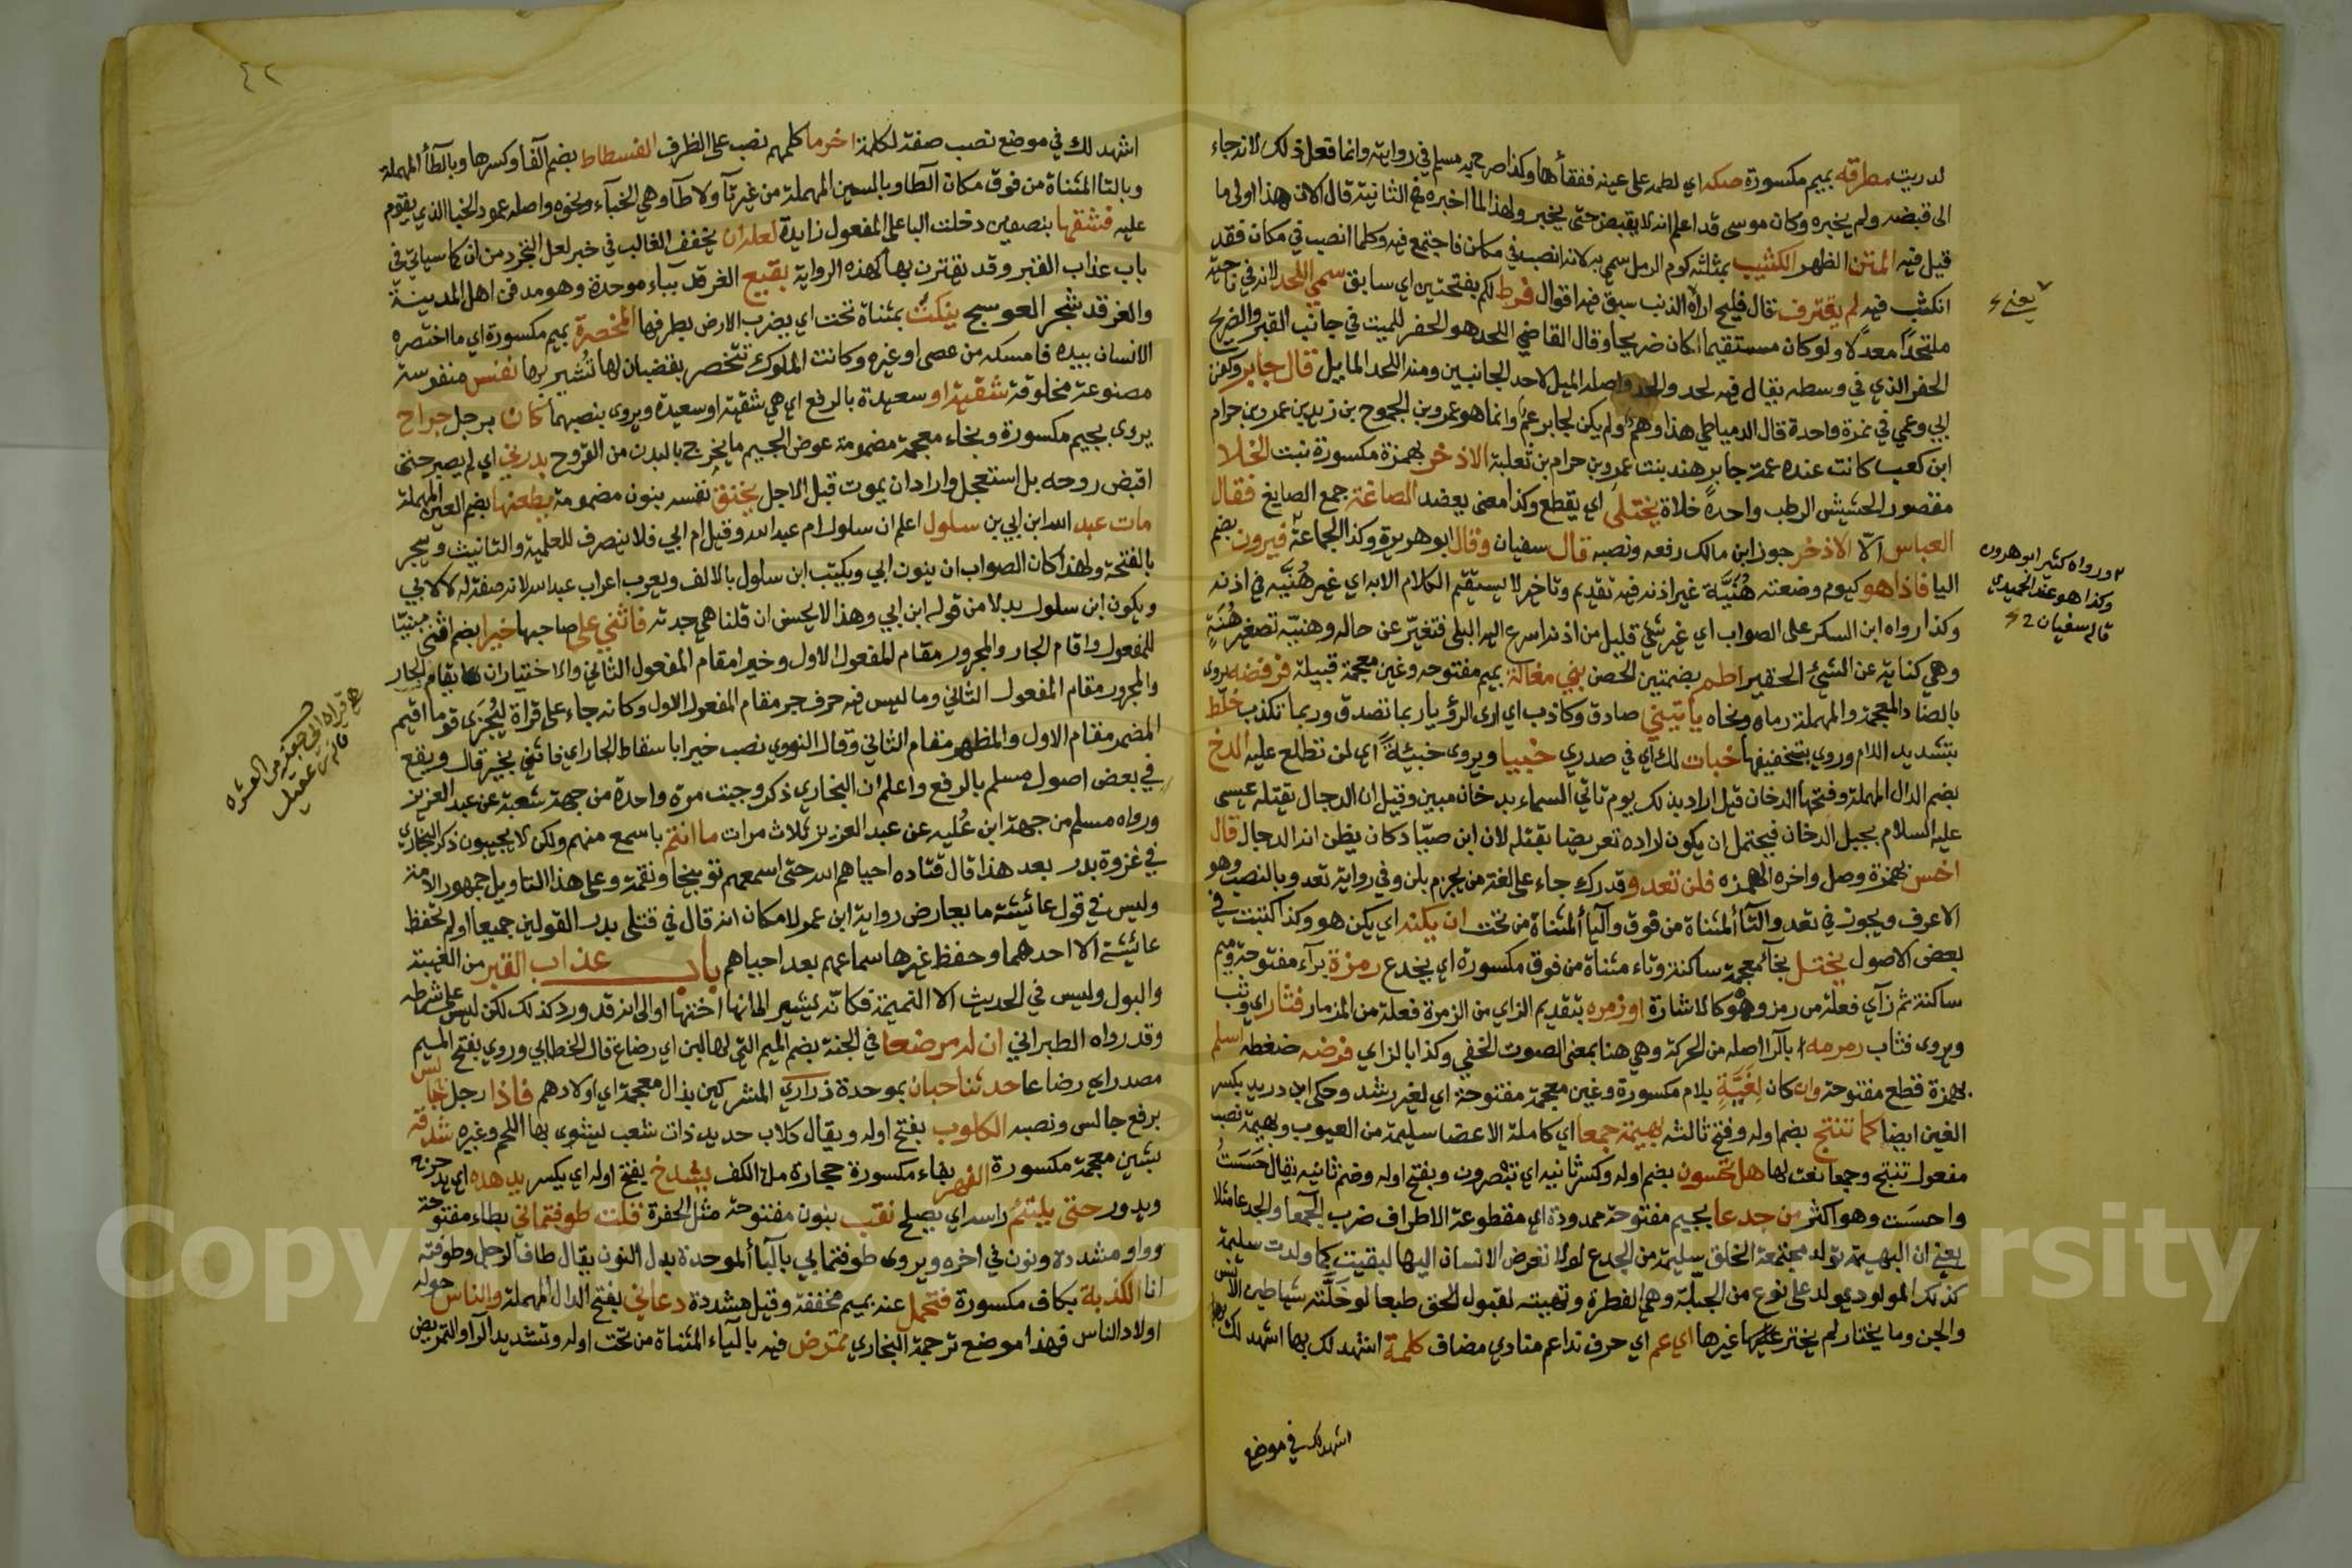 لدريت مطرقه بميم مكسورة صكه اي لطمه على عينه ففقأها وكذا صرح به مسلم في روايته وانما فعل ذلك لانه جاء
الى قبضه ولم يخبره وكان موسى قد اعلم انه لا يقبض حتى يخير ولهذا لما اخبره في الثانية قال الان هذا اولى ما
قيل فيه المتن الظهر الكثيب بمثلثه كوم الرمل سمي به لانه انصب في مكان فاجتمع فيه وكلما انصب في مكان فقد
انكثب فيه لم يقترف قال فليح اراه الذنب سبق فيه اقوال فرط لكم بفتحتين اي سابق سمي اللحد لانه في ناحية
ملتحدًا معدلًا ولو كان مستقيما كان ضريحا وقال القاضي اللحد هو الحفر للميت في جانب القبر والضريح
الحفر الذي في وسطه يقال فيه لحد والحد واصله الميل لاحد الجانبين ومنه اللحد المايل قال جابر وكفن
ابي وعمي في نمرة واحدة قال الدمياطي هذا وهم ولم يكن لجابر عم وانما هو عمرو بن الجموح بن زيد بن عمرو بن حرام
ابن كعب كانت عنده عمة جابر هند بنت عمرو بن حرام بن ثعلبة الاذخر بهمزة مكسورة نبت الخلا
مقصور الحشيش الرطب واحدهً خلاة يختلى اي يقطع وكذا معنى يعضد الصاغة جمع الصايغ فقال
العباس الّا الاذخر جوز ابن مالك رفعه ونصبه قال سفيان وقال ابو هريرة وكذا الجماعة فيرون بضم
اليا فاذا هو كيوم وضعته هُنَيَّة غير اذنه فيه تقديم وتاخير لا يستقيم الكلام الا به اي غير هُنَيَّه في اذنه
وكذا رواه ابن السكن على الصواب اي غير شئ قليل من اذنه اسرع اليه البلى فتغيّر عن حاله وهنيّه تصغير هُنَةٍ
وهي كناية عن الشئ الحقير اطم بضمتين الحصن بني مغالة بميم مفتوحه وغين معجمة قبيلة فرفضه يروى
بالضاد المعجمة والمهملة رماه ونحاه يأتيني صادق وكاذب اي ارى الرؤيا ربما تصدق وربما تكذب خلّط
بتشديد اللام وروي بتخفيفها خبات لك اي في صدري خبيا ويروى خبيئةً اي لن تطلع عليه الدخ
بضم الدال المهملة وفتحها الدخان قيل اراد بذلك يوم تاتي السماء بدخان مبين وقيل ان الدجال يقتله عيسى
عليه السلام بجبل الدخان فيحتمل ان يكون اراده تعريضا بقتله لان ابن صيّاد كان يظن انه الدجال قال
اخس بهمزة وصل واخره الهمزه فلن تعدو قدرك جاء على لغة من يجزم بلن وفي رواية تعدو بالنصب وهو
الاعرف ويجوز في تعد والتا المثناة من فوق واليا المثناة من تحت ان يكنه اي يكن هو وكذا كتبت في
بعض الاصول يختل بخآ معجمة ساكنة وتاء مثناة من فوق مكسورة اي يخدع رمزة برآء مفتوحة وميم
ساكنة ثم زآي فعلة من رمز وهو كالاشارة او زمره بتقديم الزاي من الزمرة فعلة من المزمار فثار اي وثب
ويروى فثاب رمرمه بالرا اصله من الحركة وهي هنا بمعنى الصوت الخفي وكذا بالزاي فرضه ضغطه اسلم
بهمزة قطع مفتوحة وان كان لِغَيَّةٍ بلام مكسورة وغين معجمة مفتوحة اي لغير رشد وحكى ابن دريد بكسر
الغين ايضا كما تنتج بضم اوله وفتح ثالثه بهيمة جمعا اي كاملة الاعضا سليمة من العيوب وبهيمة نصب
مفعول تنتج وجمعا نعت لها هل تحسون بضم اوله وكسر ثانيه اي تبصرون وبفتح اوله وضم ثانيه يقال حَسَسْتُ
واحسَست وهو اكثر من جدعا بجيم مفتوحة ممدودة اي مقطوعة الاطراف ضرب الجمعا والجدعا مثلا
يعني ان البهيمة تولد مجتمعة الخلق سليمة من الجدع لولا تعرض الانسان اليها لبقيت كما ولدت سليمة
كذلك المولود يولد على نوع من الجبلّة وهي الفطرة وتهيئته لقبول الحق طبعا لو خلّته شياطين الانس
والجن وما يختار لم يختر عليها غيرها اي عم اي حرف ندا عم منادي مضاف كلمة اشهد لك بها اشهد لك
اشهد لك في موضع
يعني
ورواه كثير ابو هريره
وكذا هو عند الحميدي
قال سفيان
٤٢
اشهد لك في موضع نصب صفة لكلمة اخر ما كلمهم نصب على الظرف الفسطاط بضم الفا وكسرها وبالطأ المهملة
وبالتا المثناة من فوق مكان الطا وبالسين المهملة من غير تآ ولا طآ وهي الخبآء ونحوه واصله عمود الخبا الذي يقوم
عليه فشقها بنصفين دخلت البا على المفعول زايدة لعله ان يخفف الغالب في خبر لعل التجرد من ان كما سياتي في
باب عذاب القبر وقد تقترن بها كهذه الرواية بقيع الغرقد بباء موحدة وهو مدفن اهل المدينة
والغرقد شجر العوسج ينكت بمثناة تحت اي يضرب الارض بطرفها المخصرة بميم مكسورة اي ما اختصره
الانسان بيده فامسكه من عصى او غيره وكانت الملوك تتخصر بقضبان لها تُشير بها نفس منفوسة
مصنوعة مخلوقة شقية او سعيدة بالرفع اي هي شقية او سعيدة ويروى بنصبهما كان برجل جراح
يروى بجيم مكسورة وبخاء معجمة مضمومة عوض الجيم ما يخرج بالبدن من القروح بدرني اي لم يصبر حتى
اقبض روحه بل استعجل واراد ان يموت قبل الاجل يخنق نفسه بنون مضمومة يطعنها بضم العين المهملة
مات عبد الله ابن ابي بن سلول اعلم ان سلول ام عبد الله وقيل ام ابي فلا ينصرف للعلمية والتانيث ويجر
بالفتحة ولهذا كان الصواب ان ينون ابي ويكتب ابن سلول بالالف ويعرب اعراب عبد الله لانه صفة له لا لابي
ويكون ابن سلول بدلا من قوله ابن ابي وهذا لا يحسن ان قلنا هي جدته فاثني على صاحبها خيرا بضم اثني مبنيّا
للمفعول واقام الجار والمجرور مقام المفعول الاول وخيرا مقام المفعول الثاني والاختيار ان يقام الجار
والمجرور مقام المفعول الثاني وما ليس فيه حرف جر مقام المفعول الاول وكانه جاء على قراة ليُجزَى قوما اقيم
المضمر مقام الاول والمظهر مقام الثاني وقال النووي نصب خيرا باسقاط الجار اي فاثني بخير قال ويقع
في بعض اصول مسلم بالرفع واعلم ان البخاري ذكر وجبت مرة واحدة من جهة شعبة عن عبد العزيز
ورواه مسلم من جهة ابن عُليه عن عبد العزيز ثلاث مرات ما انتم باسمع منهم ولكن لا يجيبون ذكر البخاري
في غزوة بدر بعد هذا قال قتاده احياهم الله حتى اسمعهم توبيخا ونقمة وعلى هذا التاويل جمهور الامة
وليس في قول عائشة ما يعارض رواية ابن عمر لامكان انه قال في قتلى بدر القولين جميعا ولم تحفظ
عائيشة الا احدهما وحفظ غيرها سماعهم بعد احياهم باب عذاب القبر من الغيبة
والبول وليس في الحديث الا النميمة فكانّه يشير الى انها اختها او الى انه قد ورد كذلك لكن ليس على شرطه
وقد رواه الطبراني ان له مرضعا في الجنة بضم الميم التي لها لبن اي رضاع قال الخطابي وروي بفتح الميم
مصدراي رضاعا حدثنا حبان بموحدة ذراري المشركين بذال معجمة اي اولادهم فاذا رجل جالس
برفع جالس ونصبه الكلوب بفتح اوله ويقال كلاب حديد ذات شعب يشوى بها اللحم وغيره شدقه
بشين معجمة مكسورة الفهر بفاء مكسورة حجارة ملا الكف يشدخ بفتح اوله اي يكسر يدهده اي يدحرج
ويدور حتى يلتئم راسه اي يصلح نقب بنون مفتوحة مثل الحفرة قلت طوفتماني بطاء مفتوحة
وواو مشددة ونون في اخره ويروى طوفتمابي بالبآ الموحدة بدل النون يقال طاف الرجل وطوفته
انا الكذبة بكاف مكسورة فتحمل عنه بميم مخففة وقيل مشددة دعاني بفتح الدال المهملة والناس حوله
اولاد الناس فهذا موضع ترجمة البخاري تمرض فيه باليآء المثناة من تحت اوله وتشديد الرآ والتمريض
هي قراة ابي جعفر من العشره